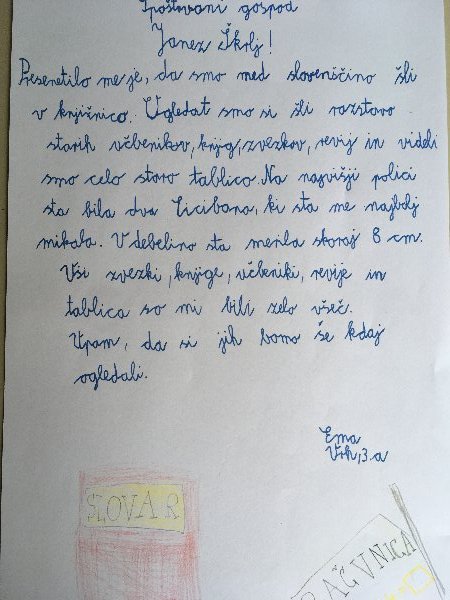 Spoštovani gospod
Janez Škrlj!
Presenetilo me je, da smo med slovenščino šli
v knjižnico. Ugledat smo si šli razstavo
starih učbenikov, knjig, zvezkov, revij in videli
smo celo staro tablico. Na najvišji polici
sta bila dva Cicibana, ki sta me najbolj
mikala. V debelino sta merila skoraj 8 cm.
Vsi zvezki, knjige, učbeniki, revije in
tablica so mi bili zelo všeč.
Upam, da si jih bomo še kdaj
ogledali.
Ema
Vrh, 3. a
SLOVAR
RAČUNICA